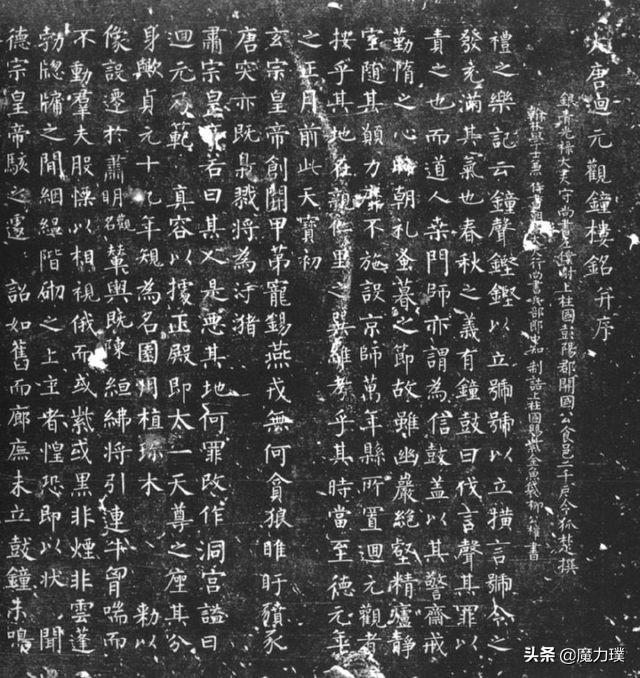 大唐迴元觀鐘樓銘并序
銀青光祿大夫守尚書左僕射上柱國彭陽郡開國公食邑二千戶令狐楚撰
翰林學士兼侍書朝議大夫行尚書兵部郎中知制誥上柱國賜紫金魚袋柳公權書
禮之樂記云鐘聲鏗鏗以立號號以立橫言號令之
發充滿其氣也春秋之義有鐘鼓曰伐言聲其罪以
責之也而道人桑門師亦謂為信鼓蓋以其警齋戒
勤惰之心時朝礼蚤暮之節故雖幽巖絕壑精廬靜
室隨其願力靡不施設京師萬年縣所置迴元觀者
按乎其地在親仁里之巽維考乎其時當至德元年
之正月前此天寶初
玄宗皇帝創開甲第寵錫燕戎無何貪狼睢盱豶豕
唐突亦既梟戮將為汙豬
肅宗皇帝若曰其人是惡其地何罪改作洞宮謚曰
迴元乃範 真容以據正殿即太一天尊之座其分
身歟貞元十九年規為名園用植珍木 勅以
像設遷於肅明觀名輦輿既陳絙紼將引連牛胷喘而
不動羣夫股慄以相視俄而或紫或黑非煙非雲蓬
勃牕牖之間絪縕階砌之上主者惶恐即以狀 聞
德宗皇帝駭之遽 詔如舊而廊廡未立鼓鐘未鳴
头条 @魔力璞